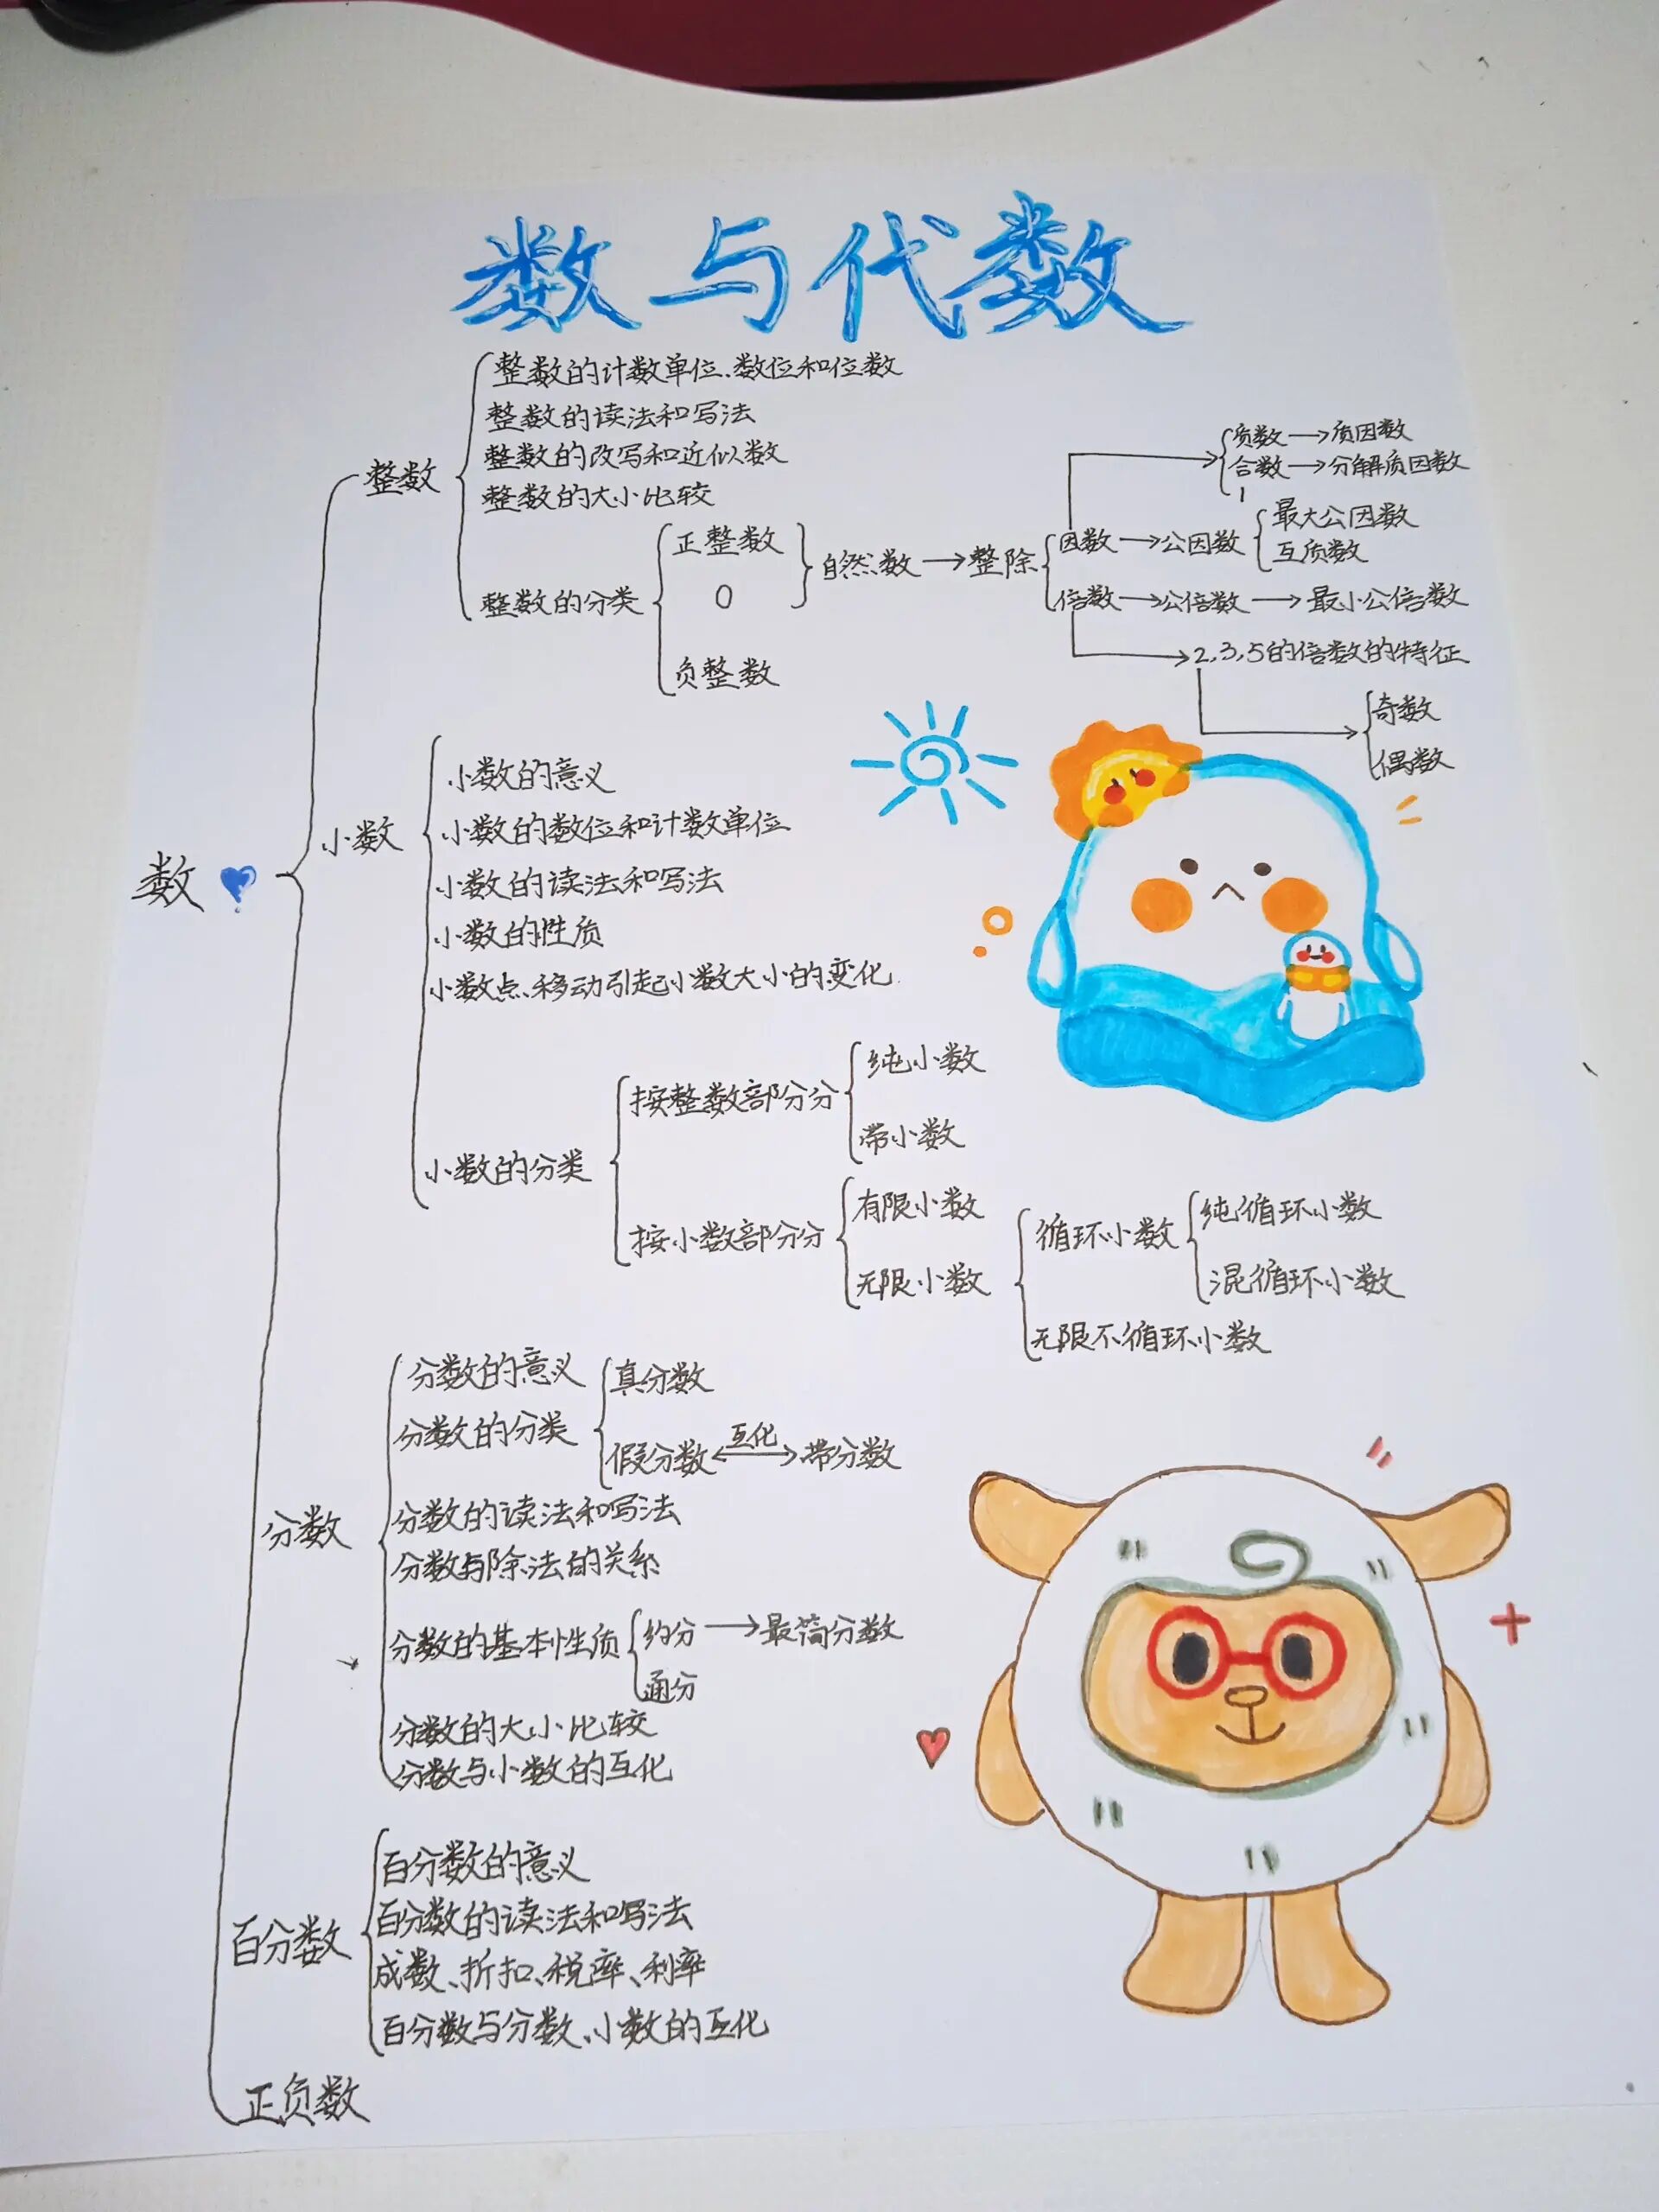 数与代数
整数的计数单位、数位和位数
整数的读法和写法
整数的改写和近似数
整数
整数的大小比较
整数的分类
正整数
0
负整数
自然数→整除
因数→公因数
最大公因数
互质数
质数→质因数
合数→分解质因数
1
倍数→公倍数→最小公倍数
2,3,5的倍数的特征
奇数
偶数
数
小数
小数的意义
小数的数位和计数单位
小数的读法和写法
小数的性质
小数点移动引起小数大小的变化
小数的分类
按整数部分分
纯小数
带小数
按小数部分分
有限小数
无限小数
循环小数
纯循环小数
混循环小数
无限不循环小数
分数
分数的意义
分数的分类
真分数
假分数 互化 带分数
分数的读法和写法
分数与除法的关系
分数的基本性质
约分→最简分数
通分
分数的大小比较
分数与小数的互化
百分数
百分数的意义
百分数的读法和写法
成数、折扣、税率、利率
百分数与分数、小数的互化
正负数